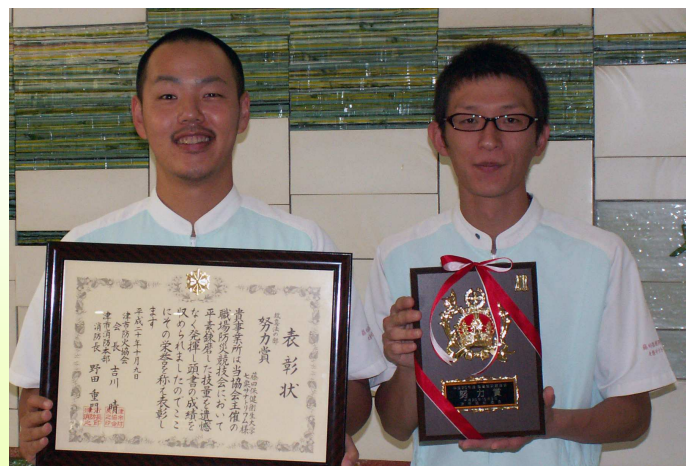 表彰状
努力賞
藤田保健衛生大学
七栗サナトリウム様
貴事業所は当協会主催の
職場防火競技会において
平素錬磨した技量を遺憾
なく発揮し頭書の成績を
収められましたのでここ
にその栄誉を称え表彰し
ます
平成二十年十月九日
津市防火協会
会長 吉川 晴
津市消防本部
消防長 野田 重門
努力賞